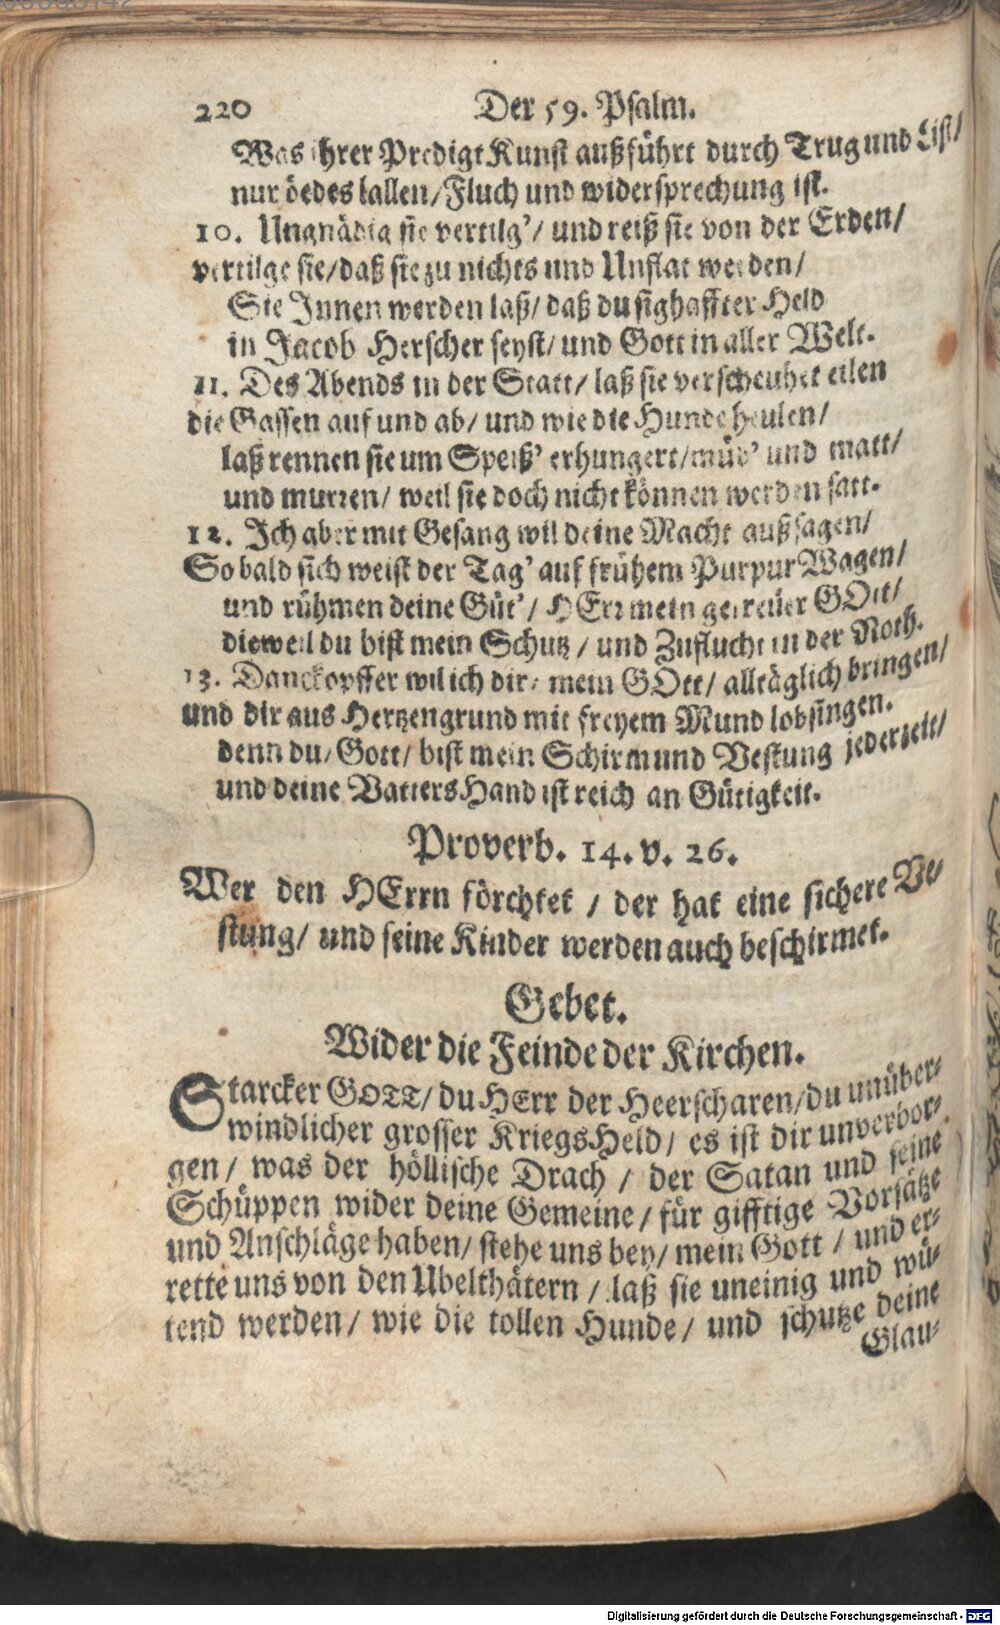 220 Der 59. Psalm.
Was ihrer Predigt Kunst außführt durch Trug und List/
nur öedes lallen/Fluch und widersprechung ist.
10. Ungnädig sie vertilg'/ und reiß sie von der Erden/
vertilge sie/daß sie zu nichts und Unflat werden/
Sie Innen werden laß/ daß du sighaffter Held
in Jacob Herscher seyst/ und Gott in aller Welt.
11. Des Abends in der Statt/ laß sie verscheuhet eilen
die Gassen auf und ab/ und wie die Hunde heulen/
laß rennen sie um Speiß' erhungert/müd' und matt/
und murren/ weil sie doch nicht können werden satt.
12. Ich aber mit Gesang wil deine Macht außsagen/
So bald sich weist der Tag' auf frühem Purpur Wagen/
und rühmen deine Güt'/ HErr mein getreuer GOtt/
dieweil du bist mein Schutz / und Zuflucht in der Noth.
13. Danckopffer wil ich dir/ mein GOtt/ alltäglich bringen/
und dir aus Hertzengrund mit freyem Mund lobsingen.
denn du/ Gott/ bist mein Schirm und Vestung jederzeit/
und deine Vatters Hand ist reich an Gütigkeit.
Proverb. 14. v. 26.
Wer den HErrn förchtet / der hat eine sichere Ve-
stung/ und seine Kinder werden auch beschirmet.
Gebet.
Wider die Feinde der Kirchen.
Starcker GOTT/ du HErr der Heerscharen/du unüber-
windlicher grosser KriegsHeld/ es ist dir unverbor-
gen/ was der höllische Drach / der Satan und seine
Schüppen wider deine Gemeine/ für gifftige Vorsätze
und Anschläge haben/ stehe uns bey/ mein Gott / und er-
rette uns von den Ubelthätern / laß sie uneinig und wü-
tend werden/ wie die tollen Hunde/ und schutze deine
Glau-
Digitalisierung gefördert durch die Deutsche Forschungsgemeinschaft - DFG